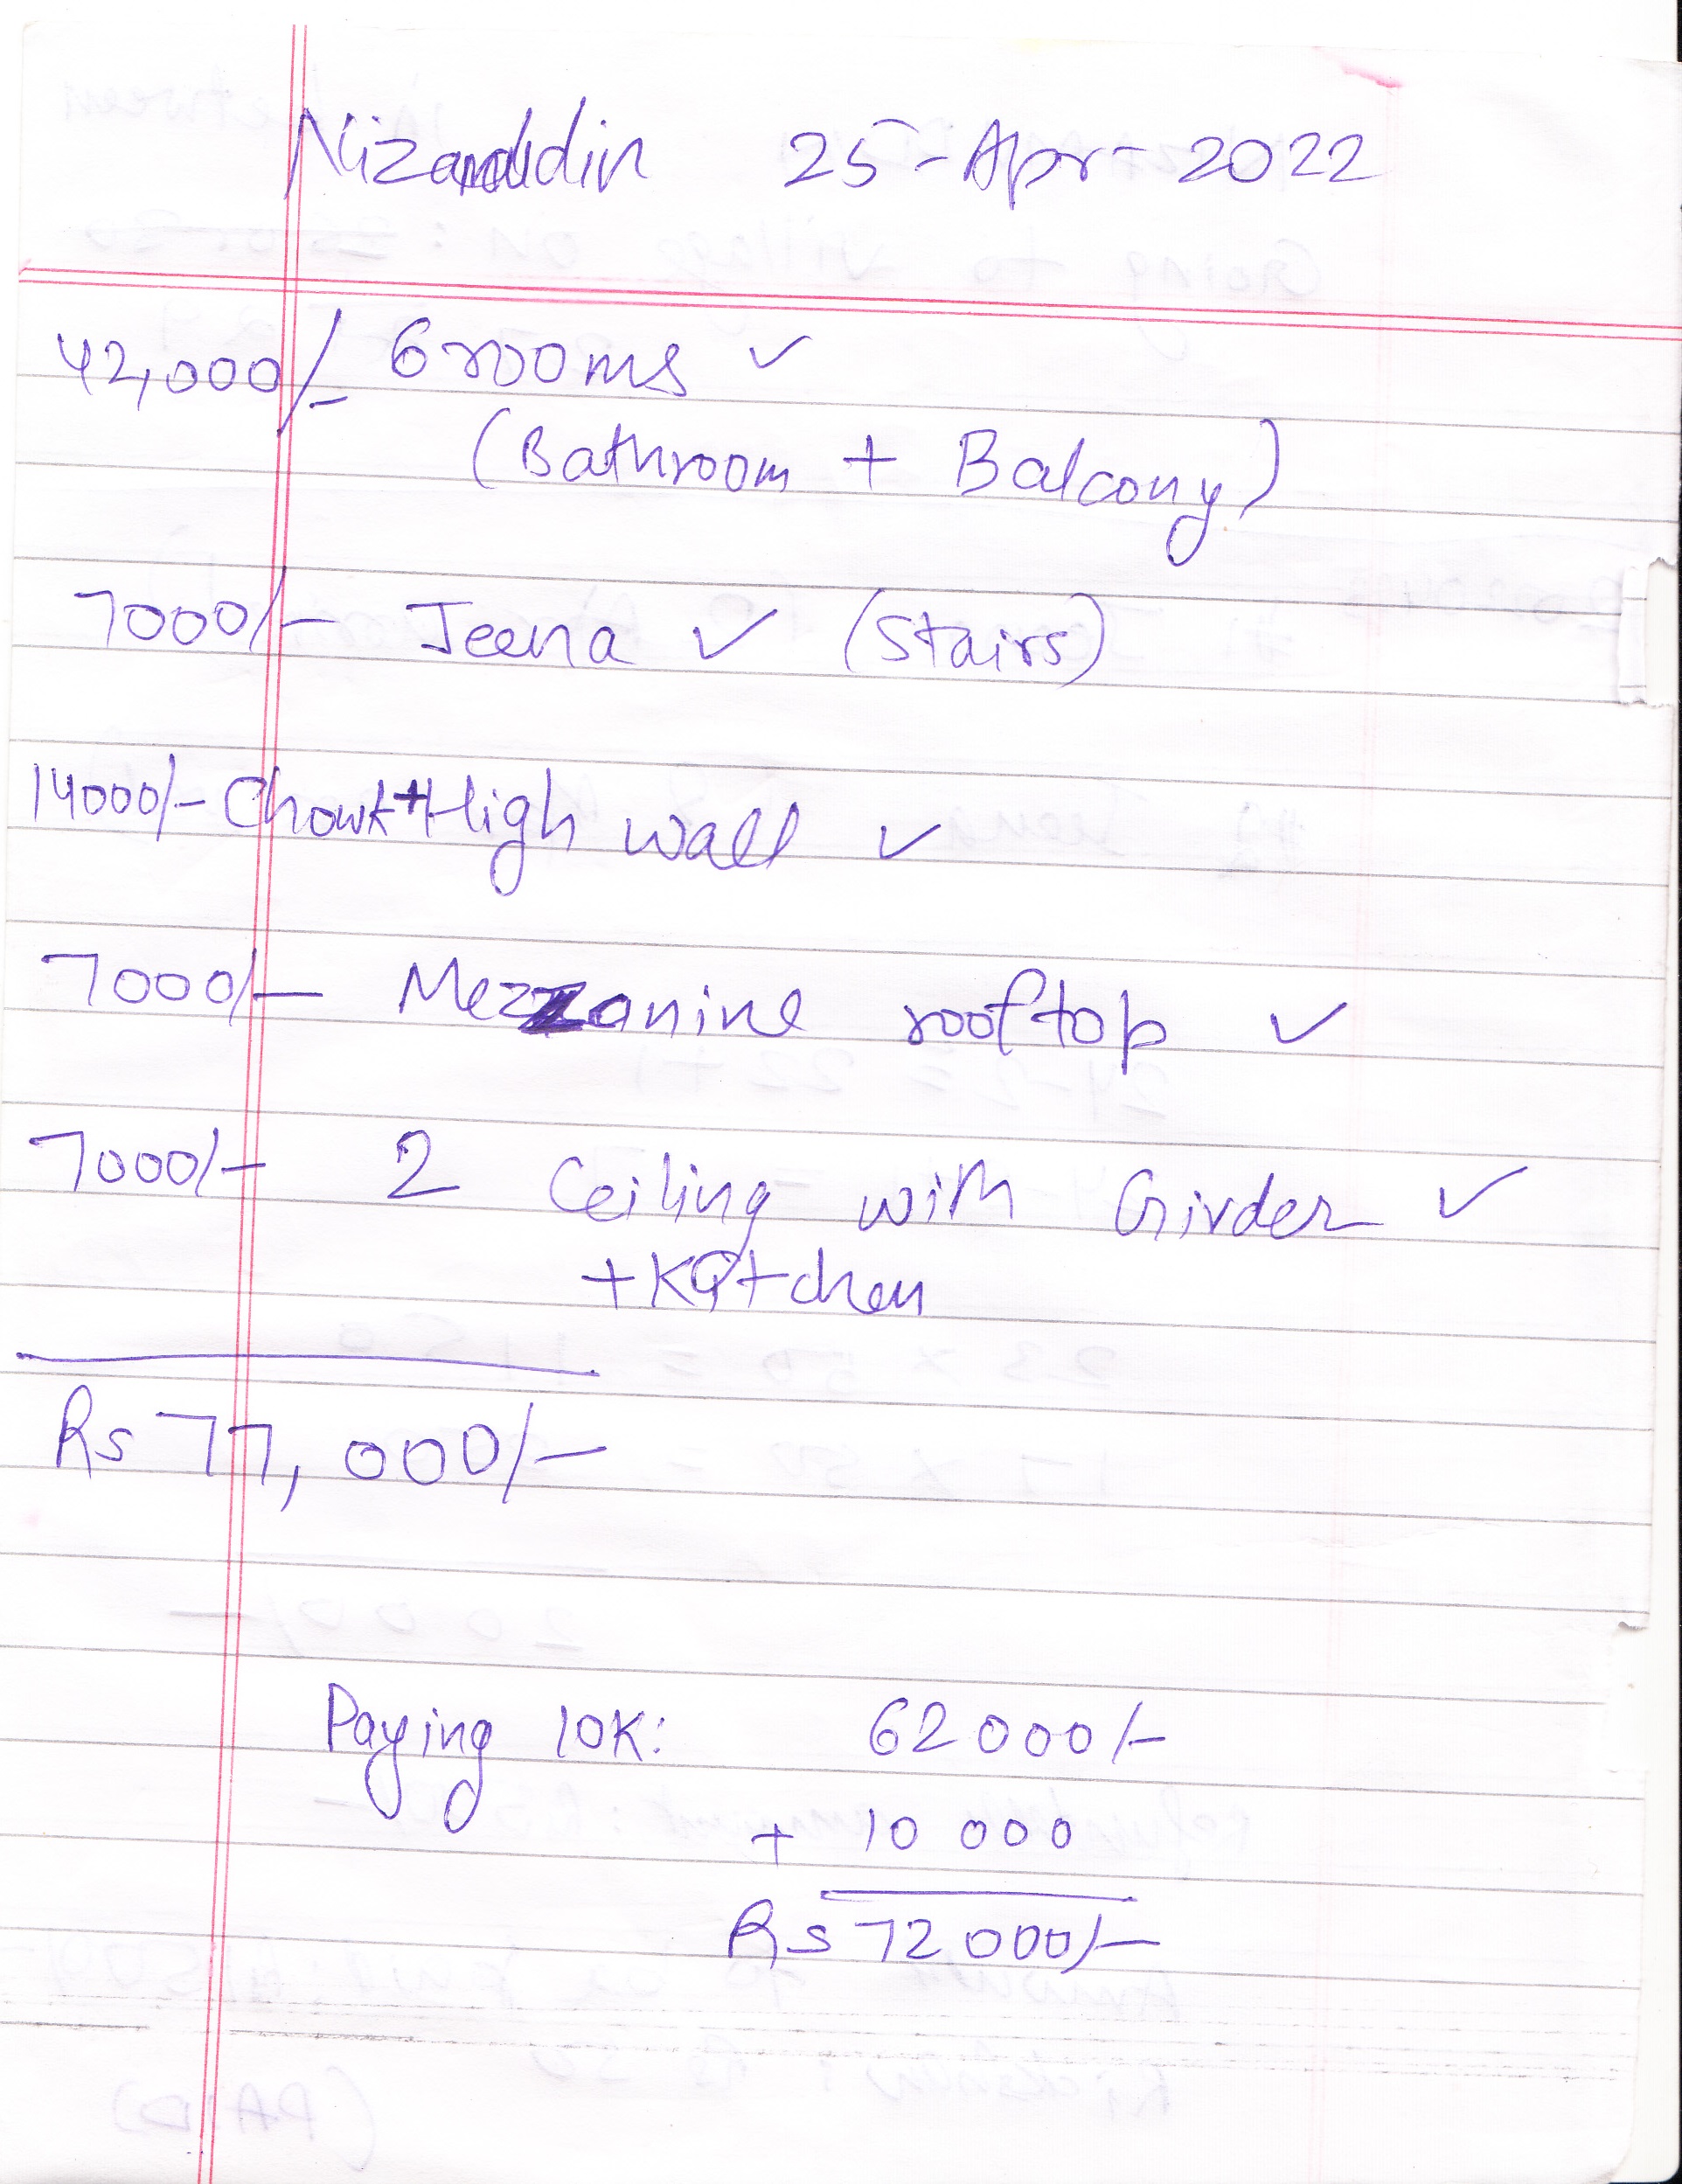 Nizamuddin 25-Apr-2022
42,000/- 6 rooms ✓
(Bathroom + Balcony)
7000/- Jeena ✓ (Stairs)
14000/- Chowk + High wall ✓
7000/- Mezzanine rooftop ✓
7000/- 2 Ceiling with Girder ✓
+ Kitchen
Rs 77,000/-
Paying 10K: 62000/-
+ 10 000
Rs 72000/-